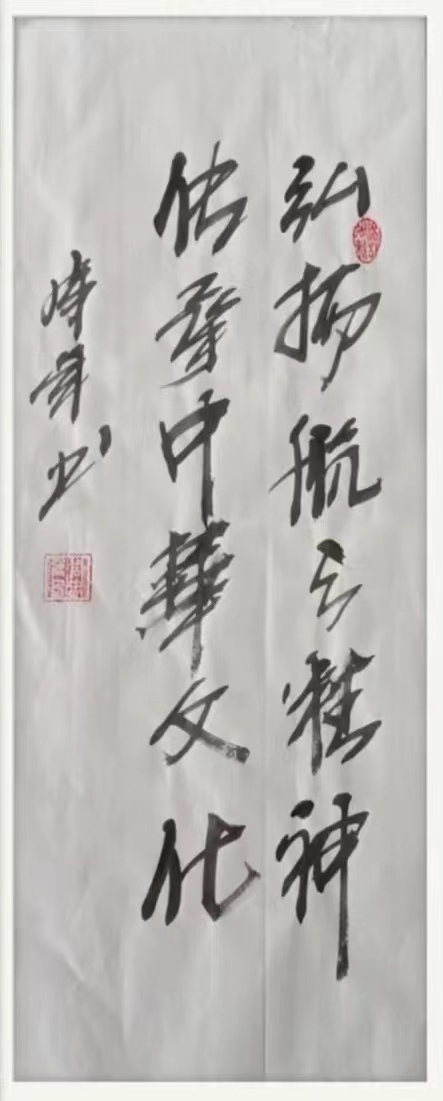 弘扬航天精神
传承中华文化
书